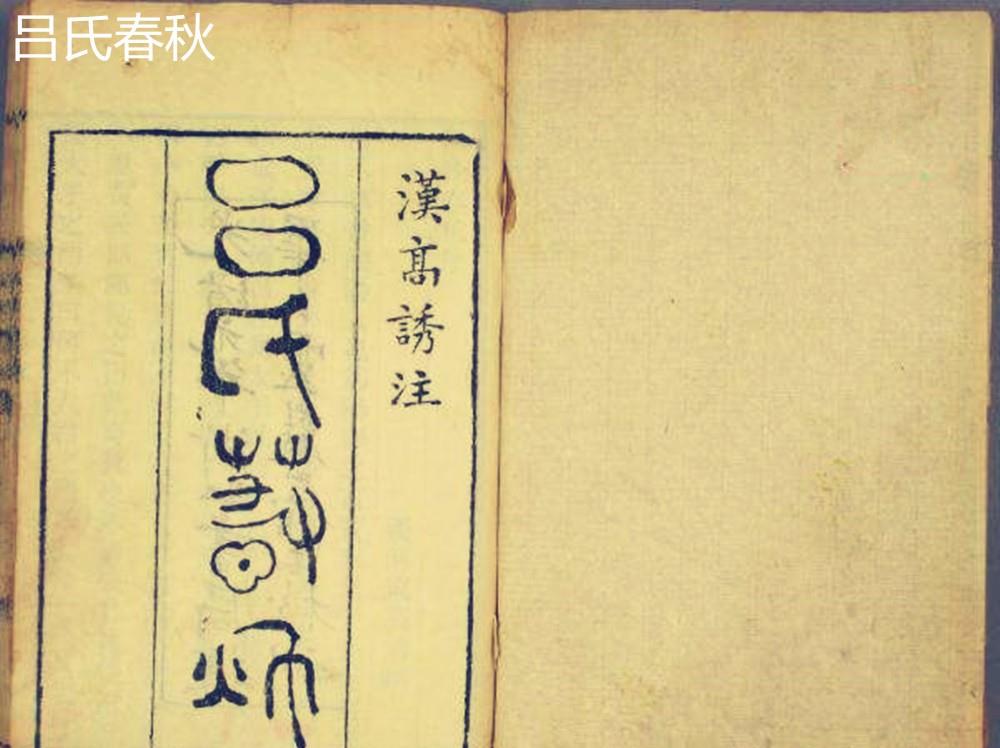 吕氏春秋
漢高誘注
呂氏春秋